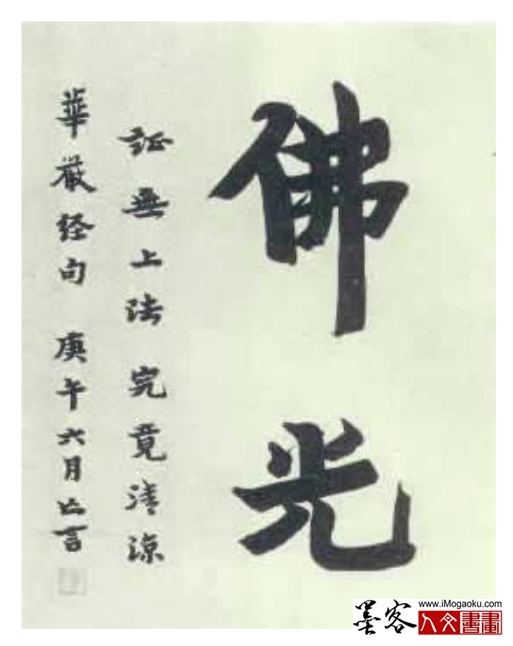 佛光
証無上法 究竟清涼
華嚴经句 庚午六月亾言
www.iMogaoku.com
墨客
人文書畫